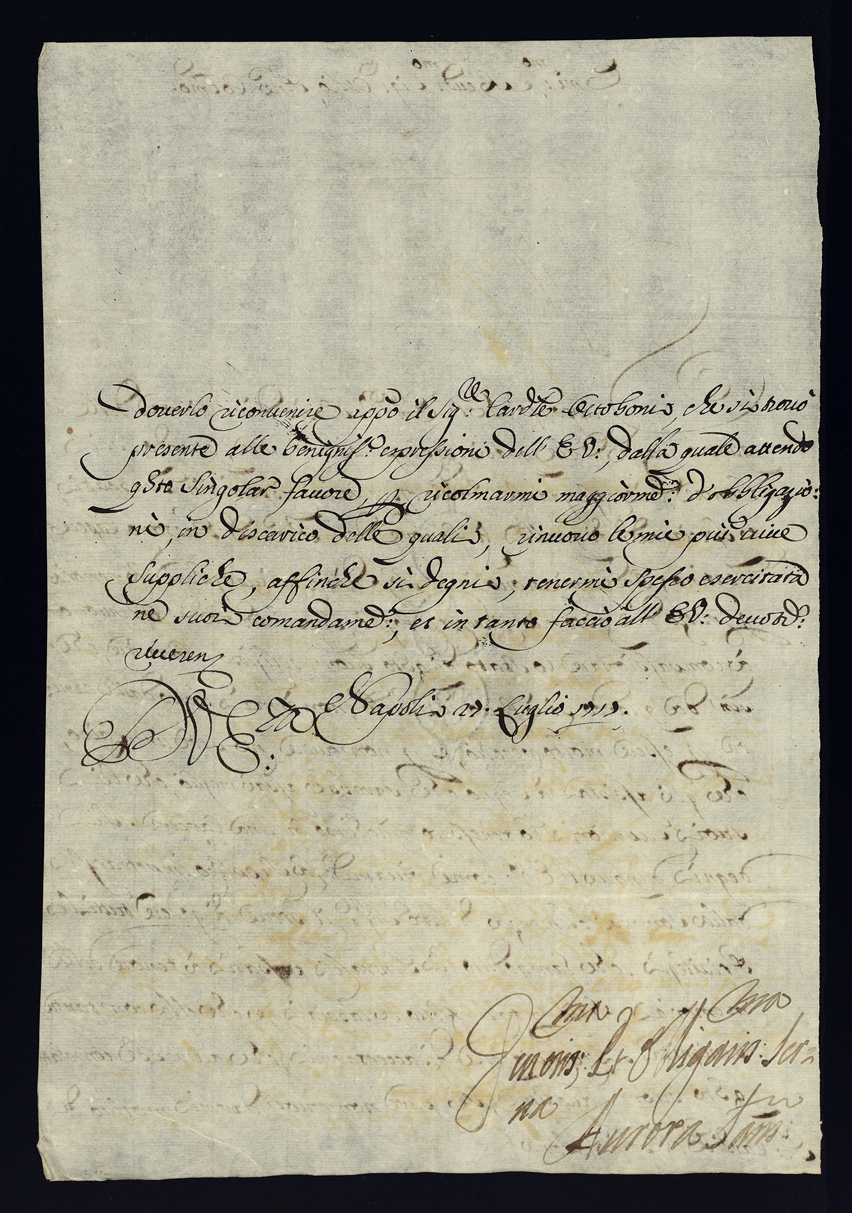 douerlo riconuenire appo il Sig.re Cardle Ottoboni, che si trouò
presente alle benignis.e expressioni dell' E V:, dalla quale attendo
qsto singolar fauore, p ricolmarmi maggiormte: d'obbligazio:
ni, in discarico delle quali, rinuouo le mie più viue
suppliche, affinche si degni, tenermi spesso esercitata
ne suoi comandamti:, et in tanto faccio all' E V: deuotma:
riueren
D V E Napoli 27 Luglio
Deuotis: et Obligatis: Ser=
ua
Aurora Sans: